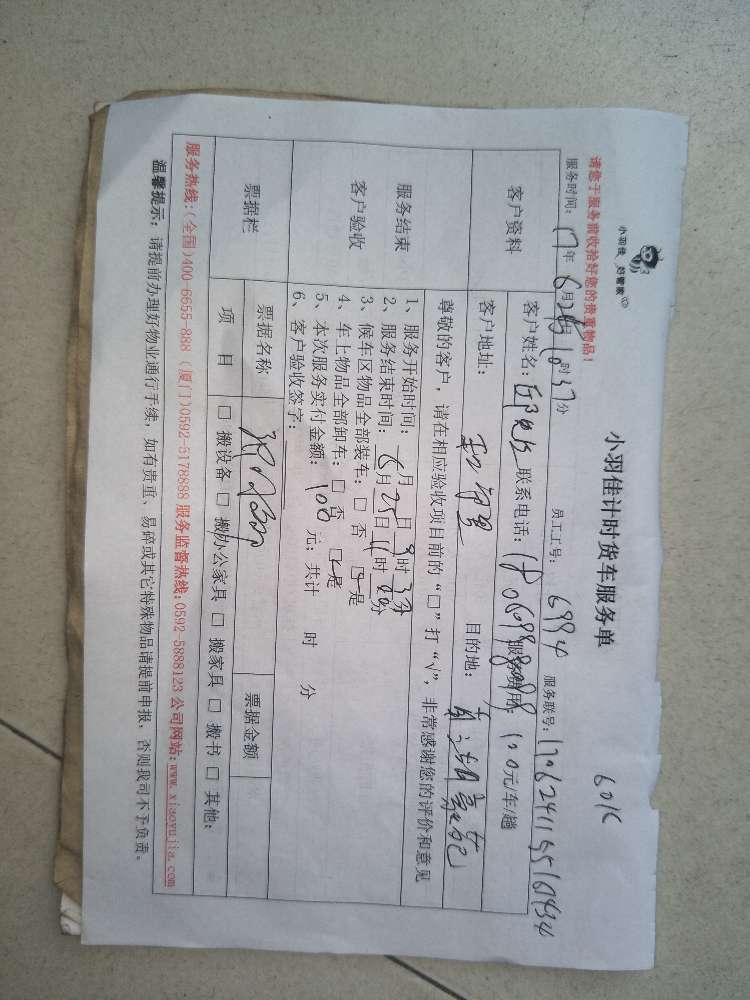 小羽佳 好管家
601K
小羽佳计时货车服务单
请您于服务前收拾好您的贵重物品!
服务时间: 17年 6月25日 10时37分 员工工号: 6994 服务联号:
客户资料 客户姓名: 联系电话: 服务费用: 100元/车/趟
客户地址: 目的地:
尊敬的客户,请在相应验收项目前的“□”打“√”,非常感谢您的评价和意见
服务结束 客户验收
1、服务开始时间: 月 日 9时 分
2、服务结束时间: 6月25日 11时00分
3、候车区物品全部装车: □ 否 □ 是
4、车上物品全部卸车: □ 否 □ 是
5、本次服务实付金额: 100 元; 共计 时 分
6、客户验收签字:
票据栏 票据名称 票据金额
项 目 □ 搬设备 □ 搬办公家具 □ 搬家具 □ 搬书 □ 其他:
服务热线:(全国)400-6655-888 (厦门)0592-5178888 服务监督热线:0592-5888123 公司网站:www.xiaoyujia.com
温馨提示: 请提前办理好物业通行手续,如有贵重、易碎或其它特殊物品请提前申报,否则我司不予负责。